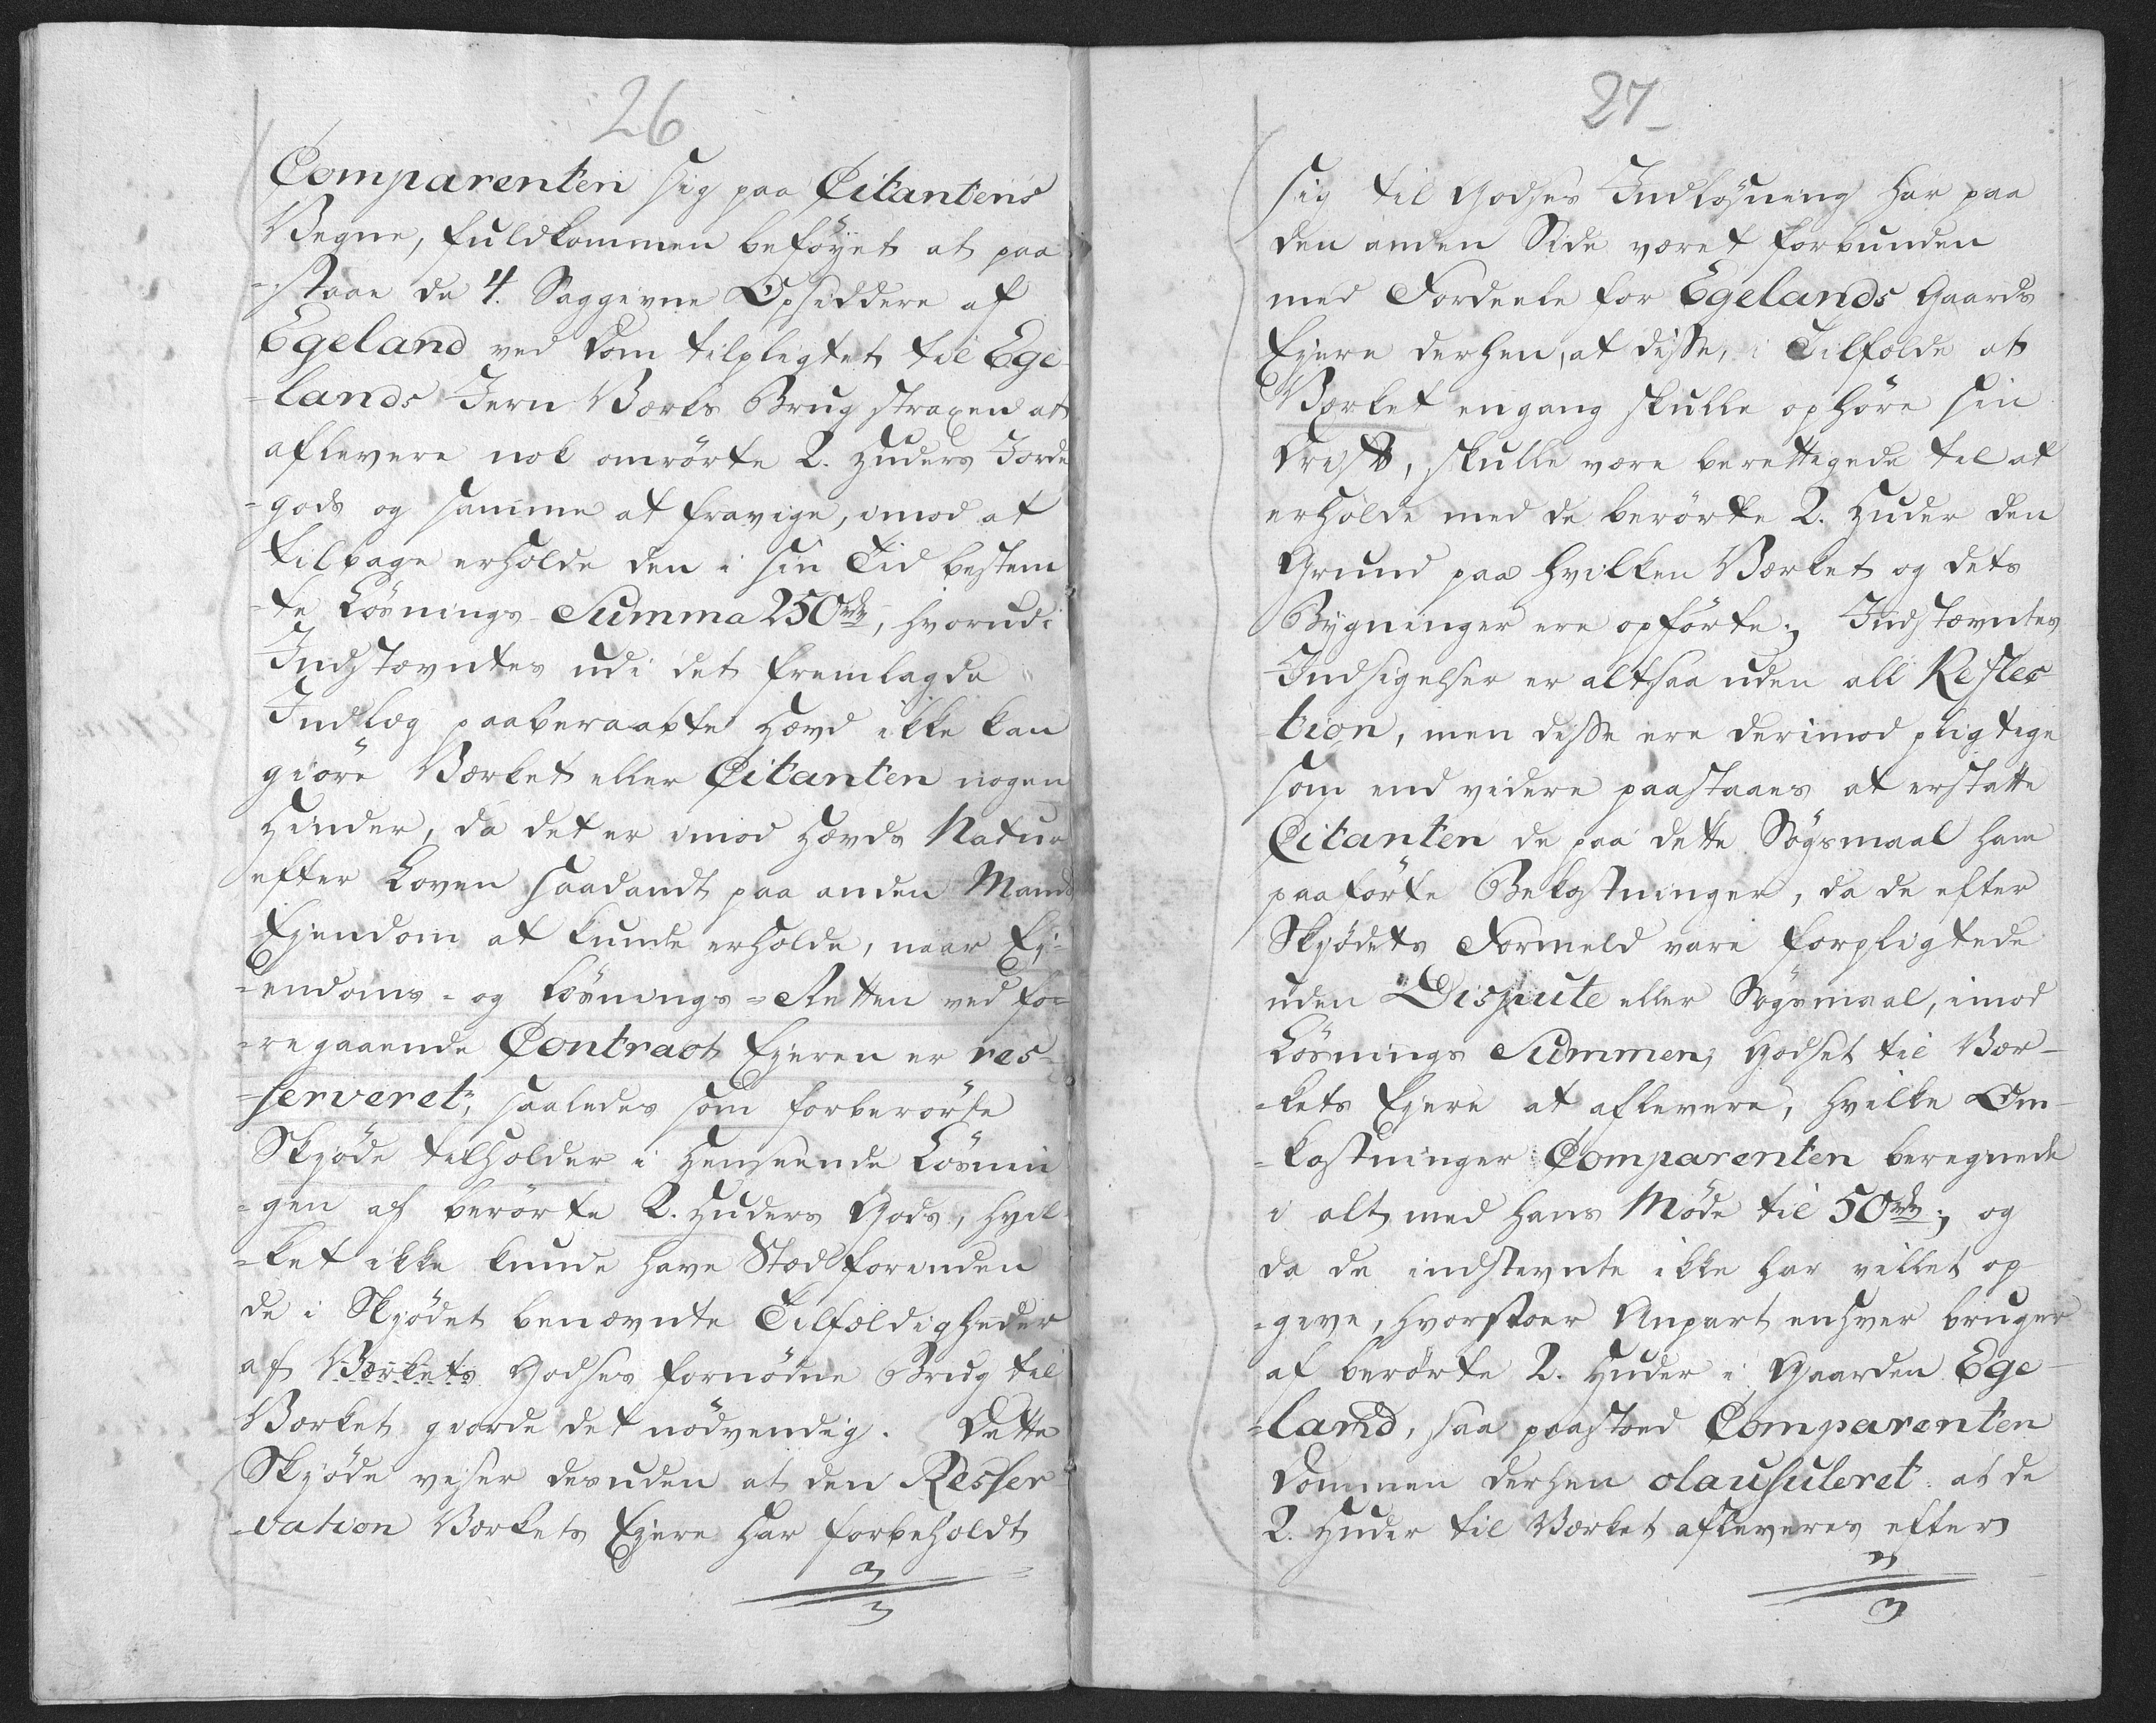 26
Comparenten sig paa Citantens
Vegne, fuldkommen beføyet at paa
=staae de 4. Saggivne Opsiddere af
Egeland ved Dom tilpligtet til Ege-
-lands Jern Værks Brug straxen at
aflevere nok omrørte 2. Huders Jorde
-gods og samme at fravige, imod at
tilbage erholde den i sin Tid bestem
-te Løsnings Summa 250rdr, hvorudi
Indstævntes udi det fremlagde
Indlæg paaberaabte Hævd ikke kan
giøre Værket eller Citanten nogen
Hinder, da det er imod Hævds Natur
efter Loven saadandt paa anden Mands
Ejendom at kunde erholde, naar Ej-
=endoms- og Løsnings=Retten ved fo=
=regaaende Contract Ejeren er res=
=serveret, saaledes som forberørte
Skjøde tilholder i Henseende Løsnin
=gen af berørte 2. Huders Gods, hvil-
=ket ikke kunde have Stæd forinden
de i Skjødet benævnte Tilfældigheder
af Værkets Godses fornødne Brug til
Værket giorde det nødvendig. Dette
Skjøde viser desuden at den Resser
-vation Værkets Ejere har forbeholdt
27
sig til Godses Indløsning har paa
den anden Side været forbunden
med Fordeele for Egelands Gaards
Ejere derhen, at disse, i Tilfælde at
Værket engang skulle ophøre sin
Drift, skulle være berettigede til at
erholde med de berørte 2. Huder den
Grund paa hvilken Værket og dets
Bygninger ere opførte; Indstævntes
Indsigelser er altsaa uden all Reflec
-tion, men disse ere derimod pligtige
som end videre paastaaes at erstatte
Citanten de paa dette Søgsmaal ham
paaførte Bekostninger, da de efter
Skjødets Formeld vare forpligtede
uden Dispute eller Søgsmaal, imod
Løsnings Summen, Godset til Vær-
-kets Ejere at aflevere, hvilke Om-
=kostninger Comparenten beregnede
i alt med hans Møde til 50rdr; og
da de indstevnte ikke har villet op
=give, hvorstoer Anpart enhver bruger
af berørte 2. Huder i Gaarden Ege-
=land, saa paastoed Comparenten
Dommen derhen clausuleret: at de
2. Huder til Værket afleveres efter